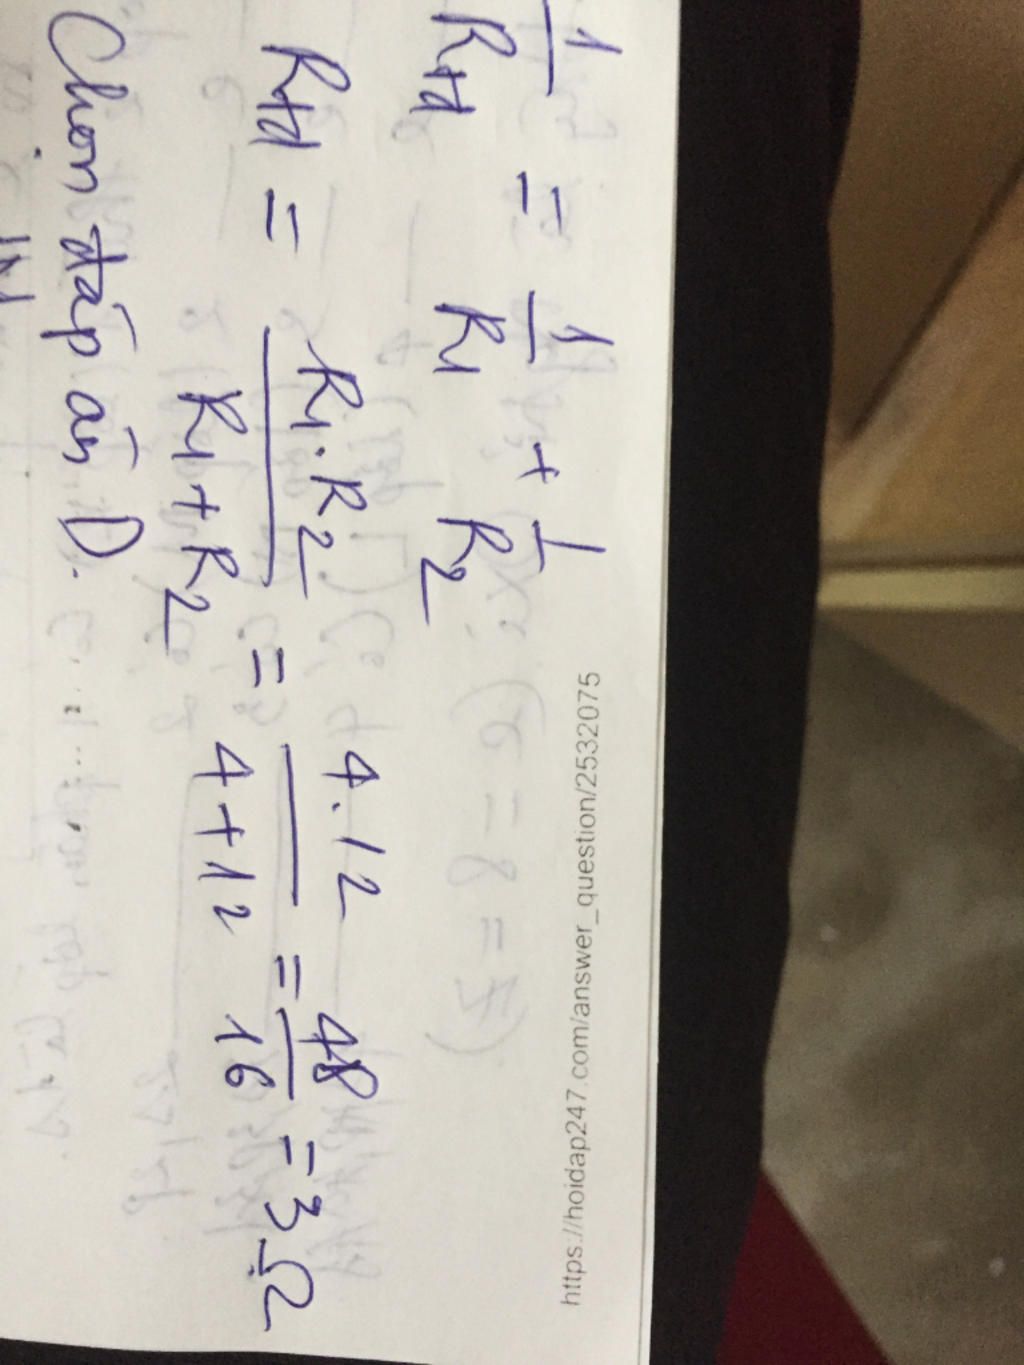 1/Rtđ = 1/R1 + 1/R2
Rtđ = R1.R2/R1+R2 = 4.12/4+12 = 48/16 = 3Ω
Chọn đáp án D.
https://hoidap247.com/answer_question/2532075